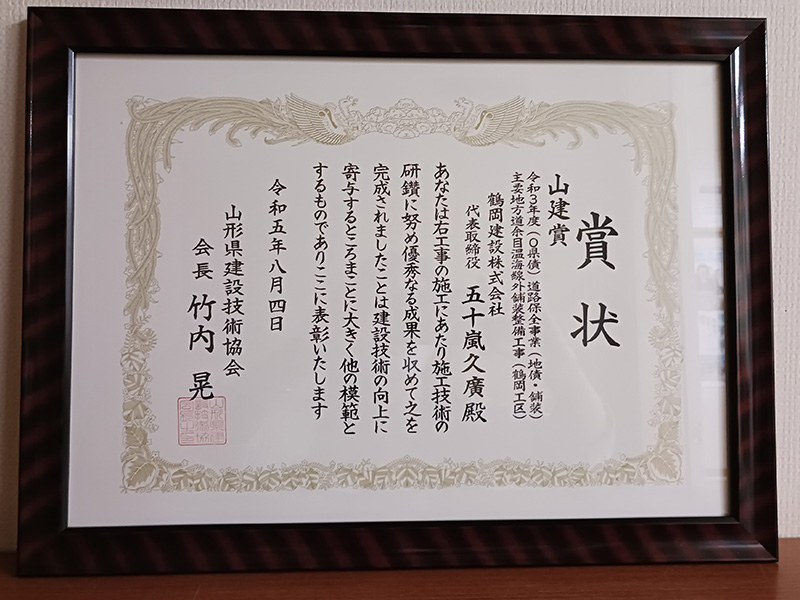 賞状
山建賞
令和3年度(〇県債)道路保全事業(地債・舗装)
主要地方道余目温海線外舗装整備工事(鶴岡工区)
鶴岡建設株式会社
代表取締役 五十嵐久廣殿
あなたは右工事の施工にあたり施工技術の
研鑽に努め優秀なる成果を収めて之を
完成されましたことは建設技術の向上に
寄与するところまことに大きく他の模範と
するものでありここに表彰いたします
令和五年八月四日
山形県建設技術協会
会長 竹内晃